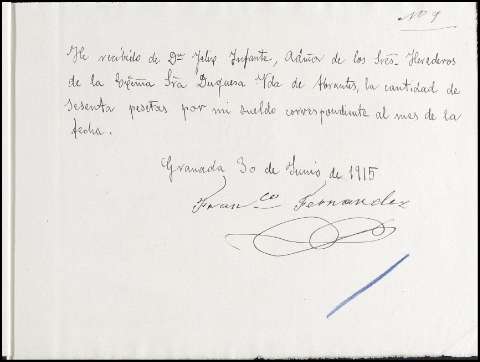 Nº 9
He recibido de Dn Felix Infante, Admor de los Sres. Herederos
de la Exçma Sra Duquesa Vda de Abrantes, la cantidad de
sesenta pesetas por mi sueldo correspondiente al mes de la
fecha.
Granada 30 de Junio de 1915
Franco Fernandez